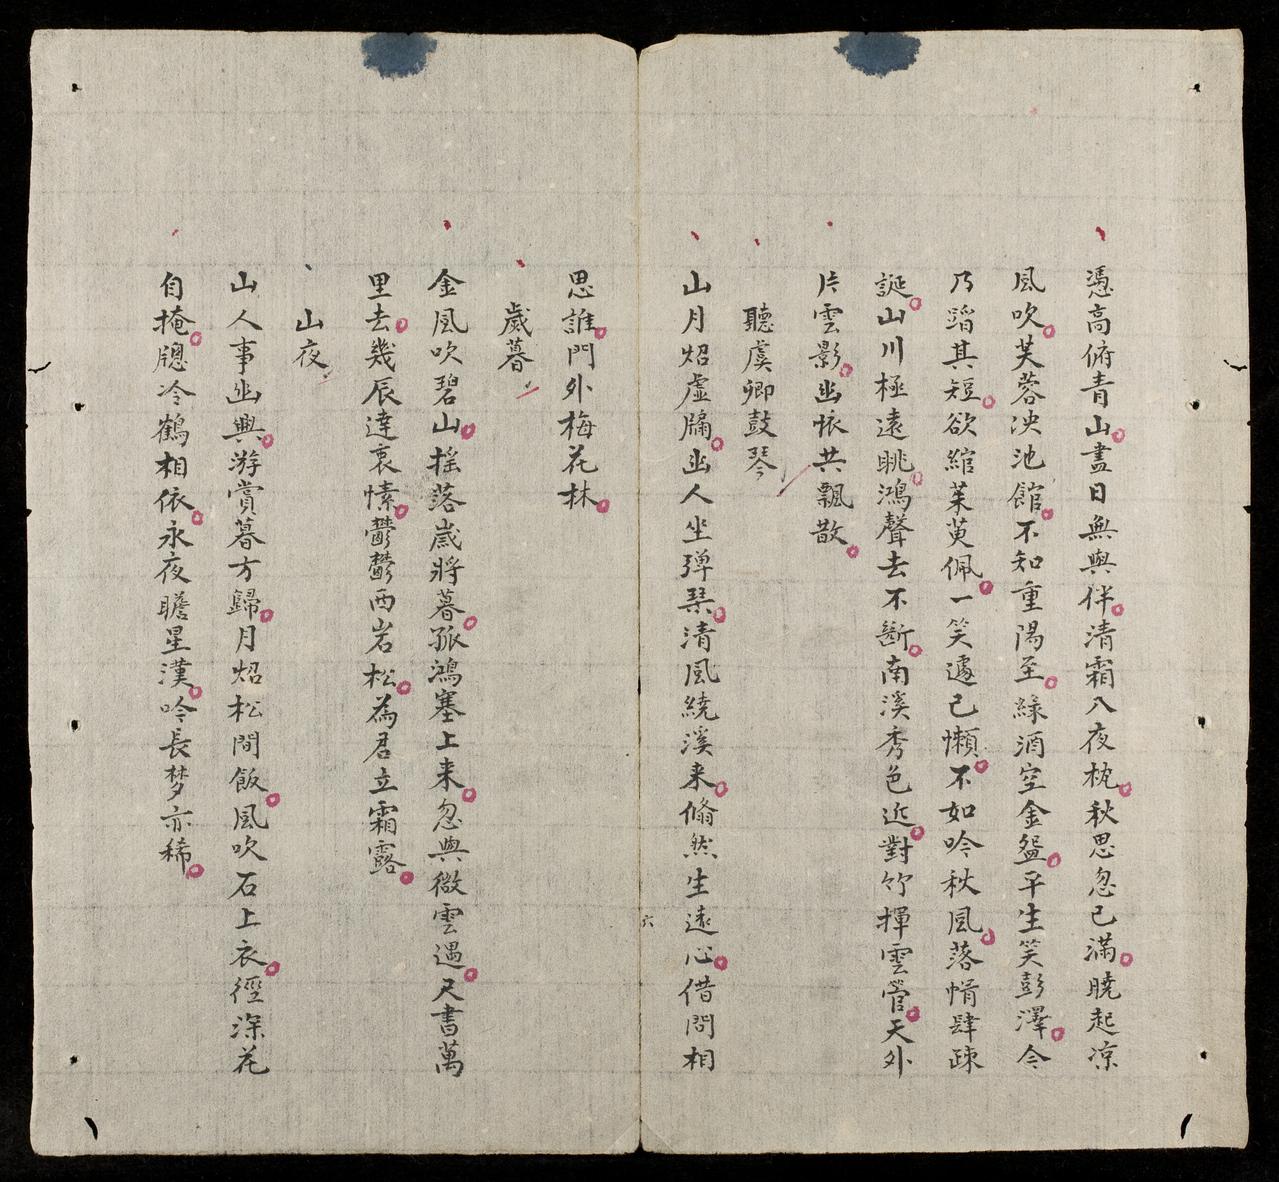 憑高俯青山盡日無與伴清霜入夜枕秋思忽已滿曉起凉
風吹芙蓉泱池館不知重陽至緑酒空金盌平生笑彭澤令
乃蹈其短欲綰茱萸佩一笑遽已懶不如吟秋風落帽肆疎
誕山川極遠眺鴻聲去不斷南溪秀色近對竹揮雲管天外
片雲影幽悵共飄散
聽虞卿鼓琴
山月炤虛牖幽人坐弾琹清風繞溪来翛然生遠心借問相
六
思誰門外梅花林
歲暮
金風吹碧山揺落歲將暮孤鴻塞上来忽與微雲遇尺書萬
里去幾辰達衷愫鬱鬱西岩松為君立霜露
山夜
山人事幽興游賞暮方歸月炤松間飯風吹石上衣徑深花
自掩牕冷鶴相依永夜瞻星漢吟長梦亦稀